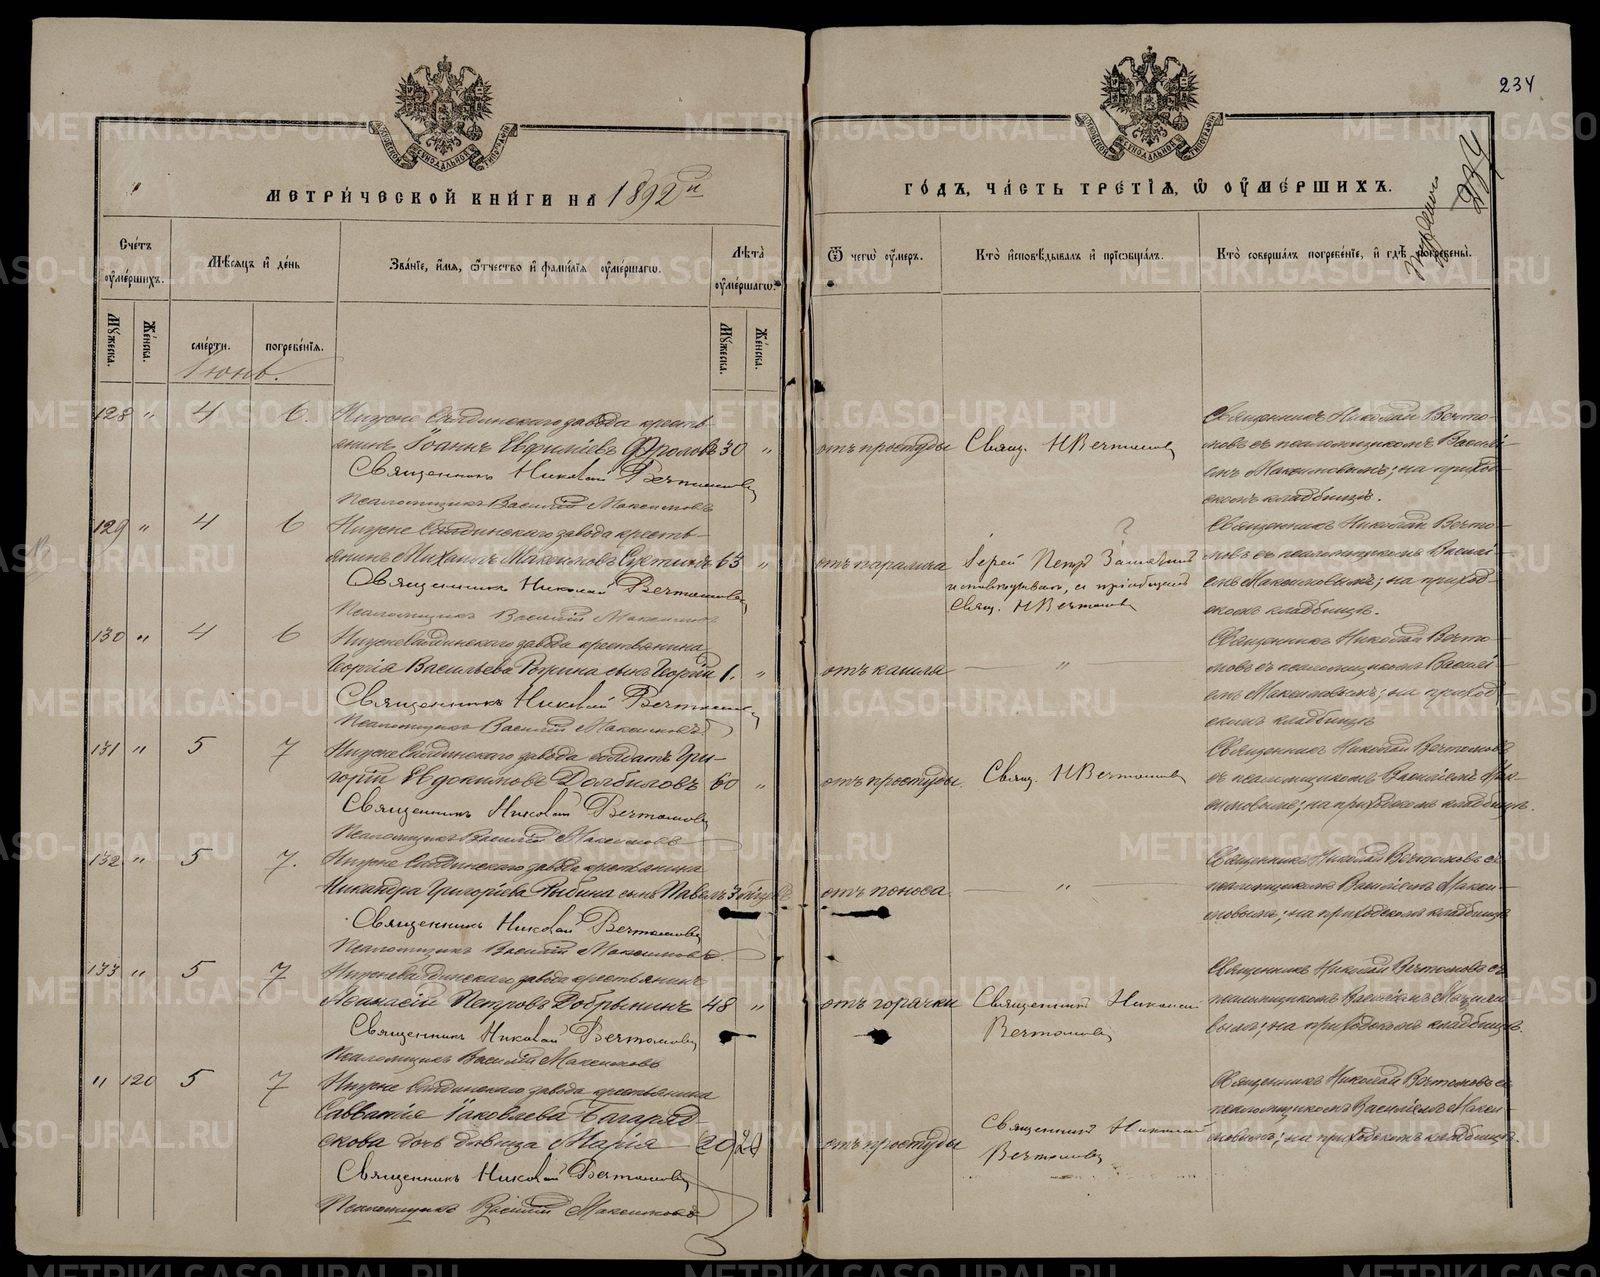 234
234
МЕТРИ́ЧЕСКОЙ КНИ́ГИ НА 1892й
ГО́ДЪ, ЧА́СТЬ ТРЕТІЯ, Ѿ ОУМЕ́РШИХЪ.
Сче́тъ оумершихъ.
Мѣсяцъ и де́нь
Зва́ніе, и́мя, ѻтчество и фами́лія оумершагѡ.
Лѣта̀ оумершагѡ.
Ѿ чегѡ̀ оумеръ.
Кто̀ исповѣ́дывалъ и пріѡбща́лъ.
Кто̀ соверша́лъ погребе́ніе, и гдѣ̀ погребены̀.
Мꙋжеска.
Же́нска.
сме́рти.
погребе́нія.
Мꙋжеска.
Же́нска.
Іюнь.
128 " 4 6. Нижне Салдинскаго завода кресть-
янинъ Іоаннъ Евфиміевъ Фроловъ 30 "
Священникъ Николай Вечтомовъ
Псаломщикъ Василій Максимовъ
отъ простуды
Свящ. Н Вечтомовъ
Священникъ Николай Вечто-
мовъ съ псаломщикомъ Василі-
емъ Максимовымъ; на приход-
скомъ кладбищѣ.
129 " 4 6 Нижне Салдинскаго завода кресть-
янинъ Михаилъ Максимовъ 63 "
Священникъ Николай Вечтомовъ
Псаломщикъ Василій Максимовъ
отъ паралича
?
Іерей Петръ
исповѣдывалъ, а пріобщалъ
Свящ. Н Вечтомовъ
Священникъ Николай Вечто-
мовъ съ псаломщикомъ Василі-
емъ Максимовымъ; на приход-
скомъ кладбищѣ.
130 " 4 6 Нижне Салдинскаго завода крестьянина
Георгія Васильева сынъ Георгій 1. "
Священникъ Николай Вечтомовъ
Псаломщикъ Василій Максимовъ
отъ кашля
"
Священникъ Николай Вечто-
мовъ съ псаломщикомъ Василі-
емъ Максимовымъ; на приход-
скомъ кладбищѣ
131 " 5 7 Нижне Салдинскаго завода солдатъ Гри-
горій Евдокимовъ Долбиловъ 60 "
Священникъ Николай Вечтомовъ
Псаломщикъ Василій Максимовъ
отъ простуды.
Свящ. Н Вечтомовъ
Священникъ Николай Вечтомовъ
съ псаломщикомъ Василіемъ Мак-
симовымъ; на приходскомъ кладбищѣ.
132 " 5 7. Нижне Салдинскаго завода крестьянина
Никандра Григорьева Рыбина сынъ Павелъ 3
Священникъ Николай Вечтомовъ
Псаломщикъ Василій Максимовъ.
отъ поноса
"
Священникъ Николай Вечтомовъ съ
псаломщикомъ Василіемъ Макси-
мовымъ; на приходскомъ кладбищѣ
133 " 5 7 Нижне Салдинскаго завода крестьянинъ
Аѳанасій Петровъ Добрынинъ 48 "
Священникъ Николай Вечтомовъ
Псаломщикъ Василій Максимовъ
отъ горячки
Священникъ Николай
Вечтомовъ
Священникъ Николай Вечтомовъ съ
псаломщикомъ Василіемъ Максимо-
вымъ; на приходскомъ кладбищѣ.
" 120 5 7 Нижне Салдинскаго завода крестьянина
Савватія Іаковлева Багаряд-
скова дочь дѣвица Марія (20) 20
Священникъ Николай Вечтомовъ
Псаломщикъ Василій Максимовъ
отъ простуды
Священникъ Николай
Вечтомовъ
Священникъ Николай Вечтомовъ съ
псаломщикомъ Василіемъ Макси-
мовымъ; на приходскомъ кладбищѣ.
METRIKI.GASO-URAL.RU